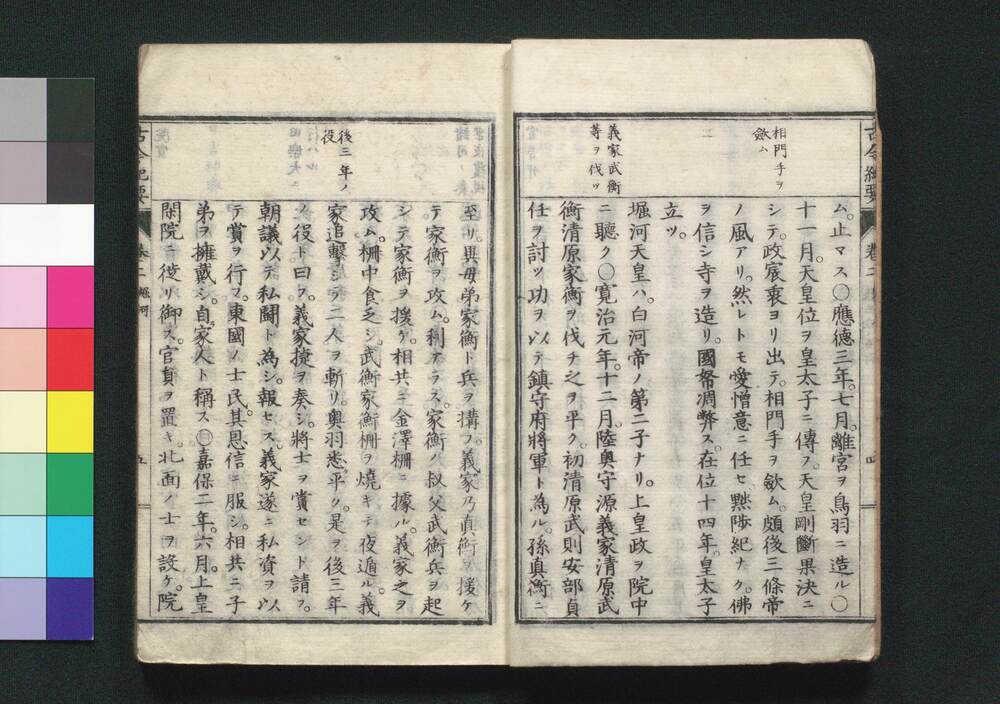 古今紀要
卷二
四
相門手ヲ
斂ム
義家武衡
等ヲ伐ツ
ム。止マス〇應德三年。七月。離宮ヲ鳥羽ニ造ル〇
十一月。天皇位ヲ皇太子ニ傳フ。天皇剛斷果決ニ
シテ。政宸衷ヨリ出テ。相門手ヲ斂ム。頗後三條帝
ノ風アリ。然レトモ愛憎意ニ任セ黜陟紀ナク。佛
ヲ信シ寺ヲ造リ。國帑凋弊ス。在位十四年。皇太子
立ツ。
堀河天皇ハ。白河帝ノ第二子ナリ。上皇政ヲ院中
ニ聽ク〇寬治元年。十二月。陸奥守源義家清原武
衡清原家衡ヲ伐チ之ヲ平ク。初清原武則安部貞
任ヲ討ツ功ヲ以テ鎮守府將軍ト為ル。孫真衡ニ
後三年ノ
役
至リ。異母弟家衡ト兵ヲ構フ。義家乃真衡ヲ援ケ
テ家衡ヲ攻ム。利アラス。家衡ノ叔父武衡兵ヲ起
シテ家衡ヲ援ケ。相共ニ金澤柵ニ據ル。義家之ヲ
攻ム。柵中食乏シ。武衡家衡柵ヲ燒キテ夜遁ル。義
家追擊シテ二人ヲ斬リ。奥羽悉平ク。是ヲ後三年
ノ役ト曰フ。義家捷ヲ奏シ。將士ヲ賞セント請フ。
朝議以テ私鬪ト為シ。報セス。義家遂ニ私資ヲ以
テ賞ヲ行フ。東國ノ士民其恩信ニ服シ。相共ニ子
弟ヲ擁戴シ。自家人ト稱ス〇嘉保二年。六月。上皇
閑院ニ徙リ御ス。官員ヲ置キ。北面ノ士ヲ設ケ。院
古今紀要
卷二 堀河
五